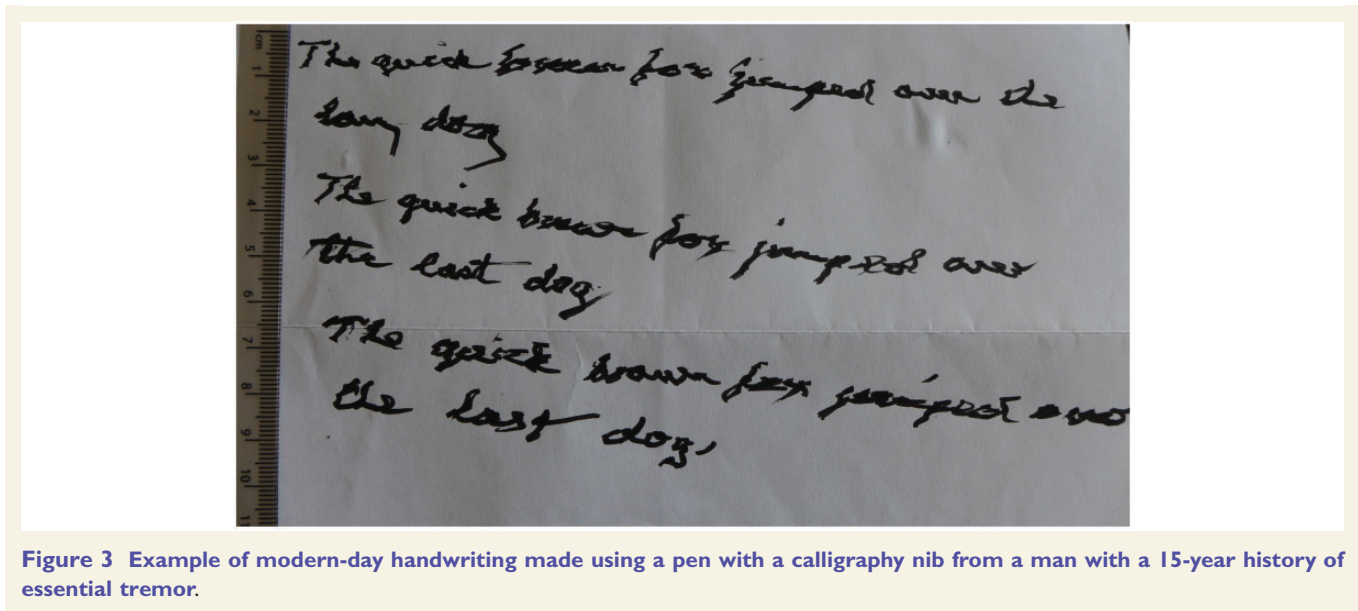 cm
1
2
3
4
5
6
7
8
9
10
11
The quick brown fox jumped over the
lazy dog
The quick brown fox jumped over
the last dog
The quick brown fox jumped over
the last dog,
Figure 3 Example of modern-day handwriting made using a pen with a calligraphy nib from a man with a 15-year history of
essential tremor.